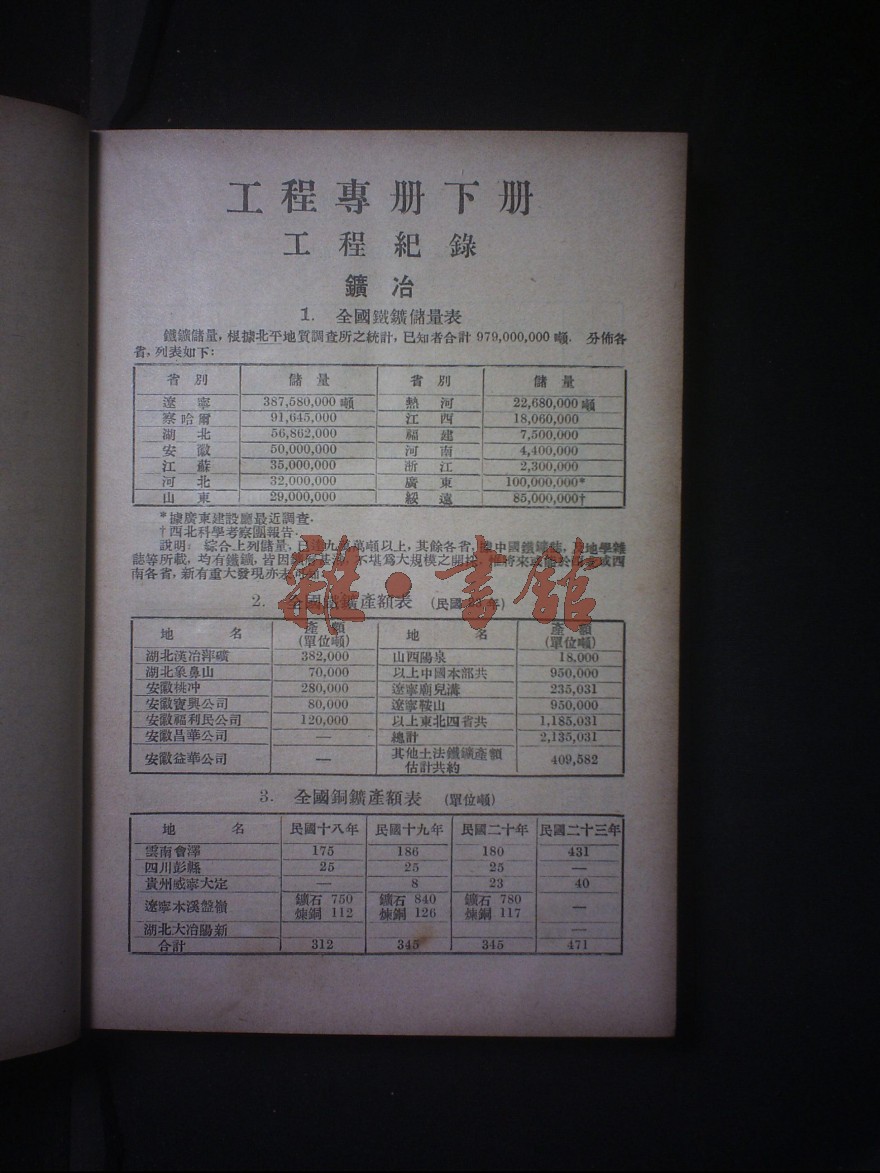 工程專册下册
工程紀錄
鑛冶
1. 全國鐵鑛儲量表
鐵鑛儲量，根據北平地質調查所之統計，已知者合計 979,000,000 噸. 分佈各
省，列表如下：
省別 儲量 省別 儲量
遼寧 387,580,000 噸 熱河 22,680,000 噸
察哈爾 91,645,000 江西 18,060,000
湖北 56,862,000 福建 7,500,000
安徽 50,000,000 河南 4,400,000
江蘇 35,000,000 浙江 2,300,000
河北 32,000,000 廣東 100,000,000*
山東 29,000,000 綏遠 85,000,000†
*據廣東建設廳最近調查.
†西北科學考察團報告.
說明：綜合上列儲量，已達九萬萬噸以上，其餘各省，據中國鐵鑛誌，及地學雜
誌等所載，均有鐵鑛，皆因鑛層甚薄，不堪爲大規模之開採，惟將來或能於西北或西
南各省，新有重大發現亦未可知.
2. 全國鐵鑛產額表 (民國 23 年)
地名 產額(單位噸) 地名 產額(單位噸)
湖北漢冶萍礦 382,000 山西陽泉 18,000
湖北象鼻山 70,000 以上中國本部共 950,000
安徽桃冲 280,000 遼寧廟兒溝 235,031
安徽寶興公司 80,000 遼寧鞍山 950,000
安徽福利民公司 120,000 以上東北四省共 1,185,031
安徽昌華公司 — 總計 2,135,031
安徽益華公司 — 其他土法鐵鑛產額估計共約 409,582
3. 全國銅鑛產額表 (單位噸)
地名 民國十八年 民國十九年 民國二十年 民國二十三年
雲南會澤 175 186 180 431
四川彭縣 25 25 25 —
貴州威寧大定 — 8 23 40
遼寧本溪盤嶺 鑛石 750 鑛石 840 鑛石 780 —
煉銅 112 煉銅 126 煉銅 117
湖北大冶陽新 —
合計 312 345 345 471
雜·書館